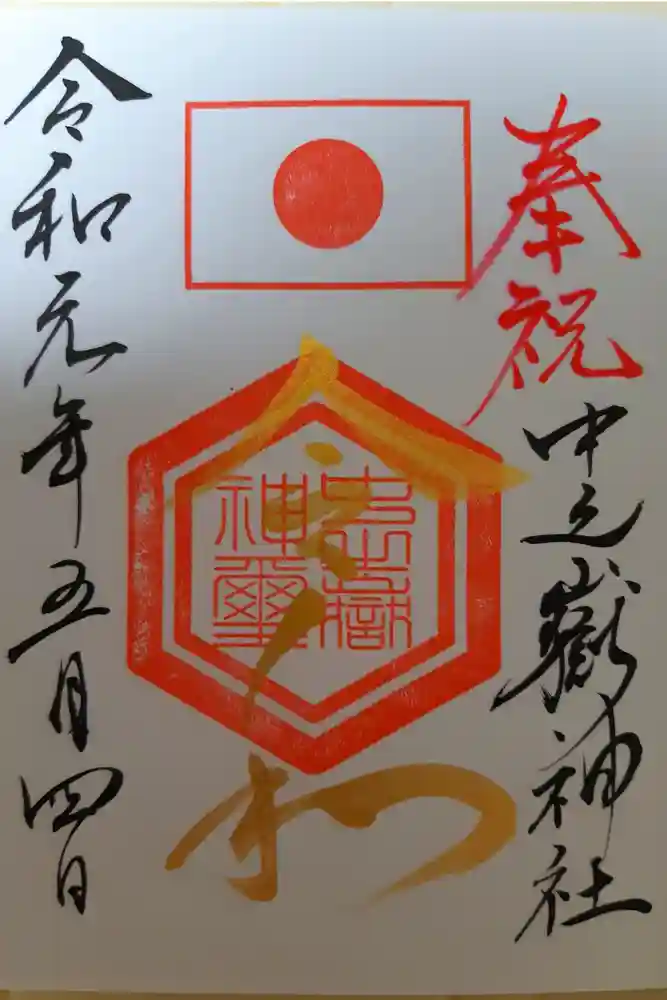 奉祝
中之嶽神社
中之嶽
神璽
令和
令和元年五月四日